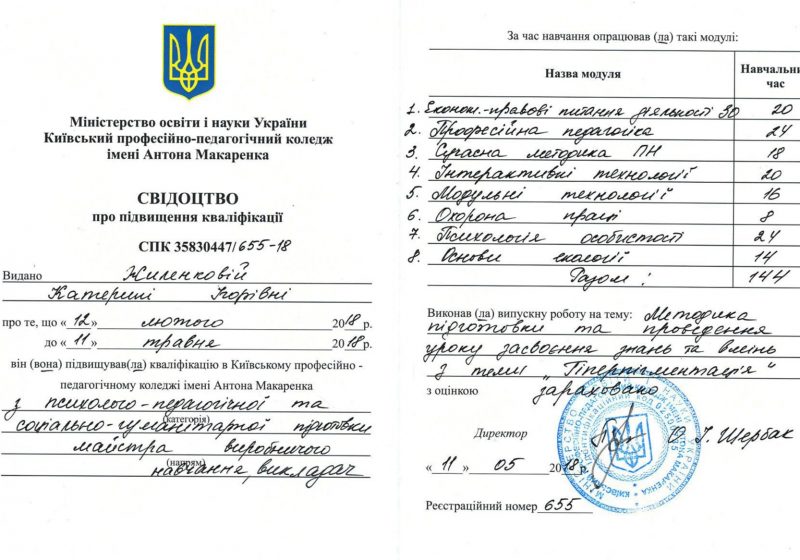 Міністерство освіти і науки України
Київський професійно-педагогічний коледж
імені Антона Макаренка
СВІДОЦТВО
про підвищення кваліфікації
СПК 35830447/655-18
Видано Жиленковій
Катерині Ігорівні
про те, що « 12 » лютого 2018 р.
до « 11 » травня 2018 р.
він (вона) підвищував(ла) кваліфікацію в Київському професійно -
педагогічному коледжі імені Антона Макаренка
з психолого-педагогічної та
(категорія)
соціально-гуманітарної підготовки
майстра виробничого
(напрям)
навчання, викладач
За час навчання опрацював (ла) такі модулі:
Назва модуля Навчальни
час
1. Економ.-правові питання діяльності ЗО 20
2. Професійна педагогіка 24
3. Сучасна методика ПН 18
4. Інтерактивні технології 20
5. Модульні технології 16
6. Охорона праці 8
7. Психологія особистості 24
8. Основи екології 14
Разом: 144
Виконав (ла) випускну роботу на тему: Методика
підготовки та проведення
уроку засвоєння знань та вмінь
з теми „Гіперпігментація"
з оцінкою зараховано
Директор О. І. Щербак
« 11 » 05 2018 р.
Реєстраційний номер 655